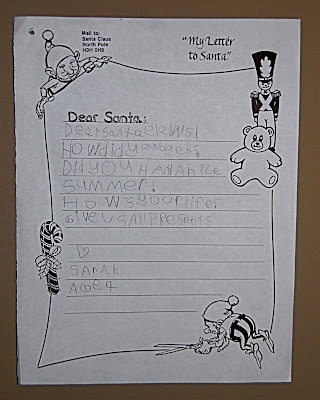 Mail to:
Santa Claus
North Pole
H0H 0H0
"My Letter
to Santa"
Dear Santa:
Dear santa
How did you
Did you Hadanice
summer!
Hows your life?
Give us all presents
Sarah
Age 4